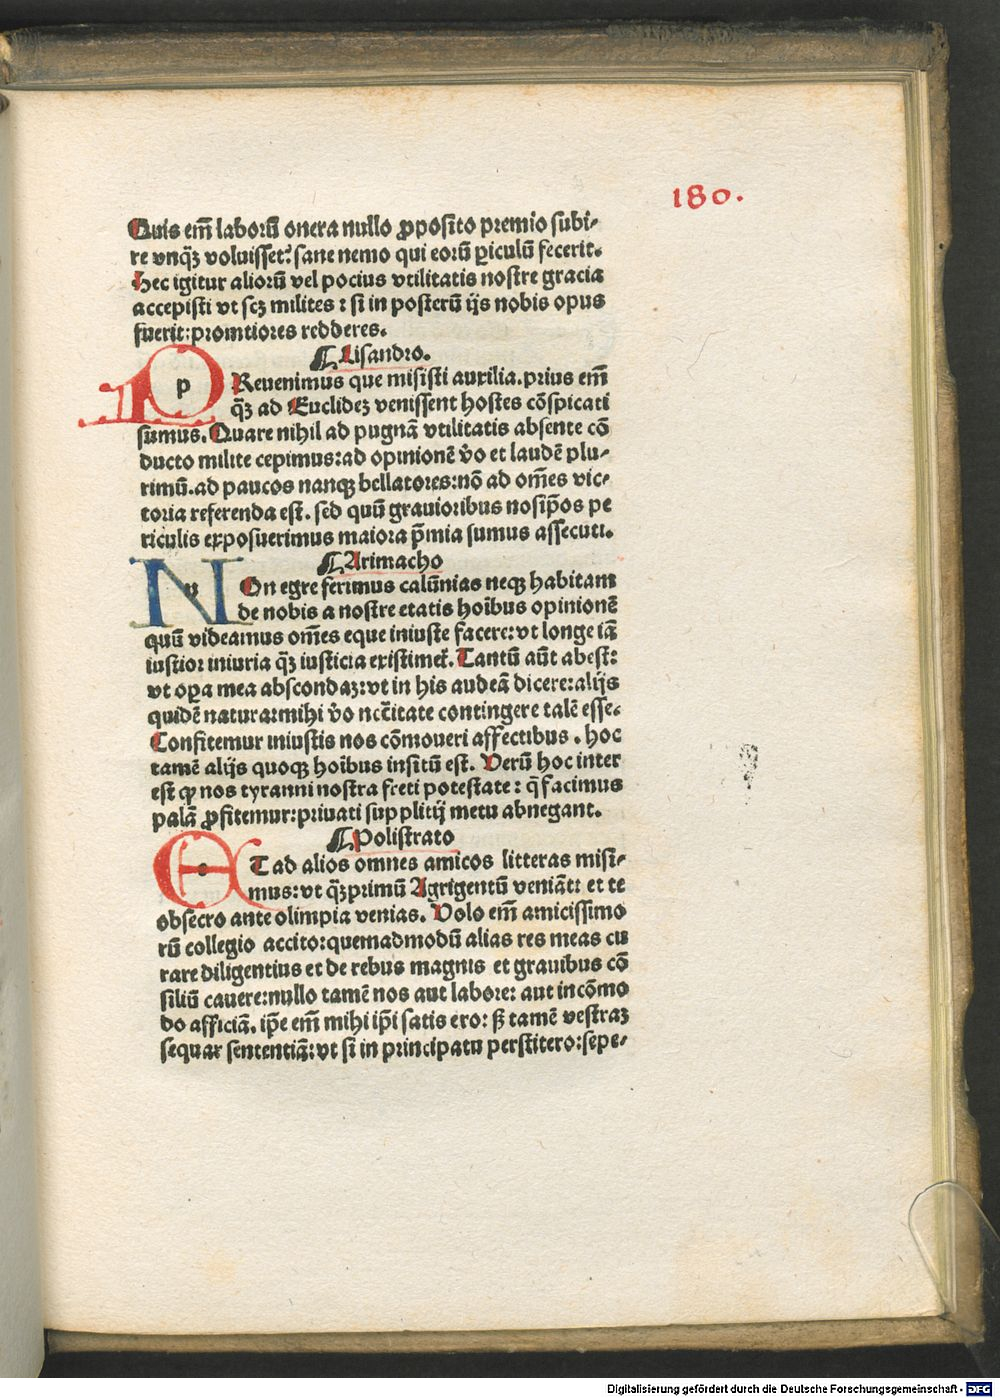 180.
Quis em̄ laborū onera nullo ꝓposito premio subi-
re vnqꝫ voluisset? sane nemo qui eorū ꝑiculū fecerit.
Hec igitur aliorū vel pocius vtilitatis nostre gracia
accepisti vt scꝫ milites : si in posterū ijs nobis opus
fuerit: promtiores redderes.
¶ Lisandro.
PReuenimus que misisti auxilia. prius em̄
qꝫ̄ ad Euclideꝫ venissent hostes cōspicati
sumus. Quare nihil ad pugnā vtilitatis absente cō
ducto milite cepimus: ad opinionē v̄o et laudē plu-
rimū. ad paucos nanqꝫ bellatores: nō ad om̄es vic-
toria referenda est. sed quū grauioribus nosip̄os pe
riculis exposuerimus maiora p̄mia sumus assecuti.
¶ Arimacho
NOn egre ferimus calūnias neqꝫ habitam
de nobis a nostre etatis hoībus opinionē
quū videamus om̄es eque iniuste facere: vt longe iā
iustior iniuria qꝫ̄ iusticia existimet᷑. Tantū aūt abest:
vt oꝑa mea abscondaꝫ: vt in his audeā dicere: alijs
quidē natura: mihi v̄o nc̄c̄itate contingere talē esse.
Confitemur iniustis nos cōmoueri affectibus . hoc
tamē alijs quoqꝫ hoībus insitū est. Verū hoc inter
est ꝙ nos tyranni nostra freti potestate : q̄ facimus
palā ꝓfitemur: priuati supplitij metu abnegant.
¶ Polistrato
ET ad alios omnes amicos litteras misi-
mus: vt qꝫ̄primū Agrigentū veniāt: et te
obsecro ante olimpia venias. Volo em̄ amicissimo
rū collegio accito: quemadmodū alias res meas cu
rare diligentius et de rebus magnis et grauibus cō
siliū cauere: nullo tamē nos aut labore: aut incōmo
do afficiā. ip̄e em̄ mihi ip̄i satis ero: sꝫ tamē vestraꝫ
sequar sententiā: vt si in principatu perstitero: sepe-
Digitalisierung gefördert durch die Deutsche Forschungsgemeinschaft - DFG